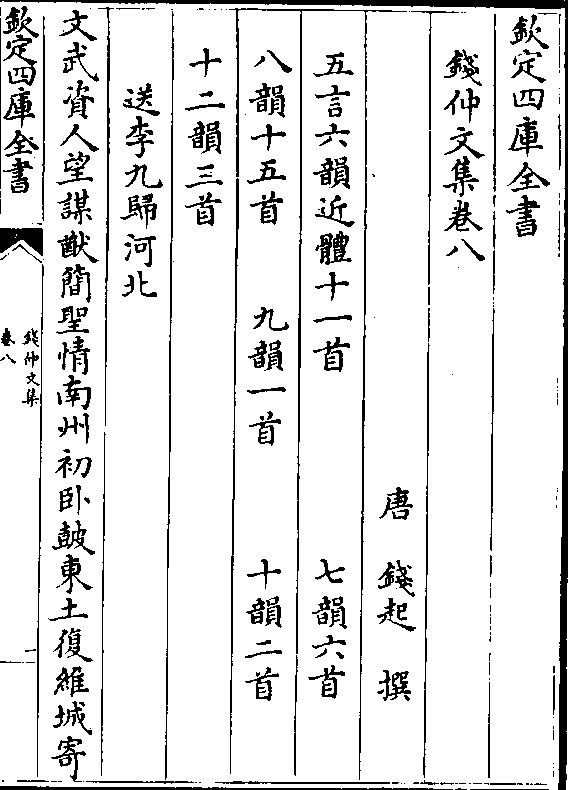 欽定四庫全書
錢仲文集卷八
唐　錢起　撰
五言六韻近體十一首　七韻六首
八韻十五首　九韻一首　十韻二首
十二韻三首
送李九歸河北
文武資人望謀猷簡聖情南州初卧鼓東土復維城寄
欽定四庫全書
錢仲文集
卷八
一